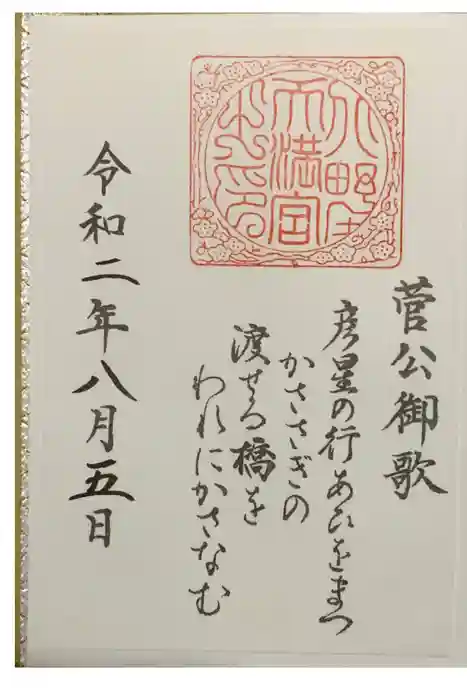 菅公御歌
彦星の行あひをまつ
かささぎの
渡せる橋を
われにかさなむ
令和二年八月五日
天満宮